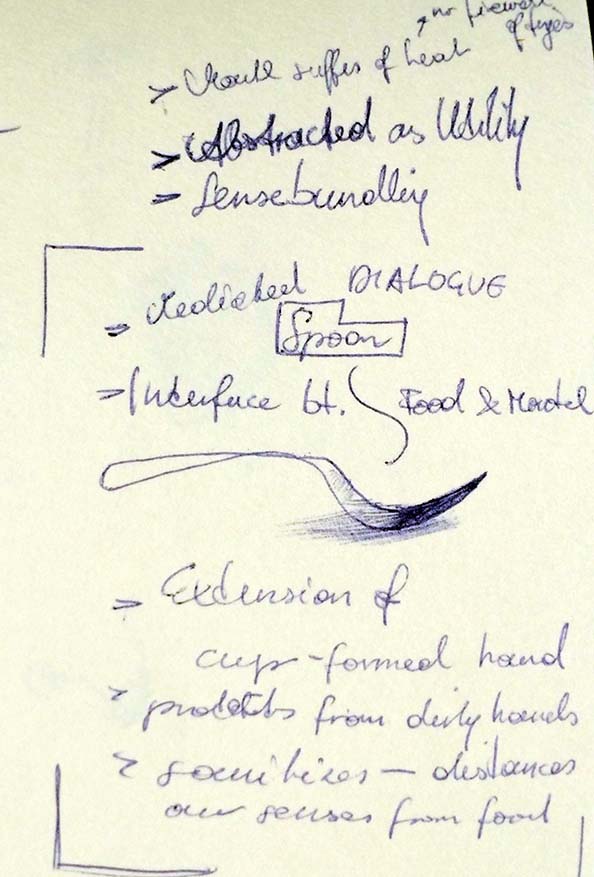 no firewall
of fingers
> Mouth suffers of heat
> Abstracted as Utility
= Sensebundling
= Mediated DIALOGUE
Spoon
> Interface bt. Food & Mouth
> Extension of
cup-formed hand
> protects from dirty hands
> sanitizes — distances
our senses from food